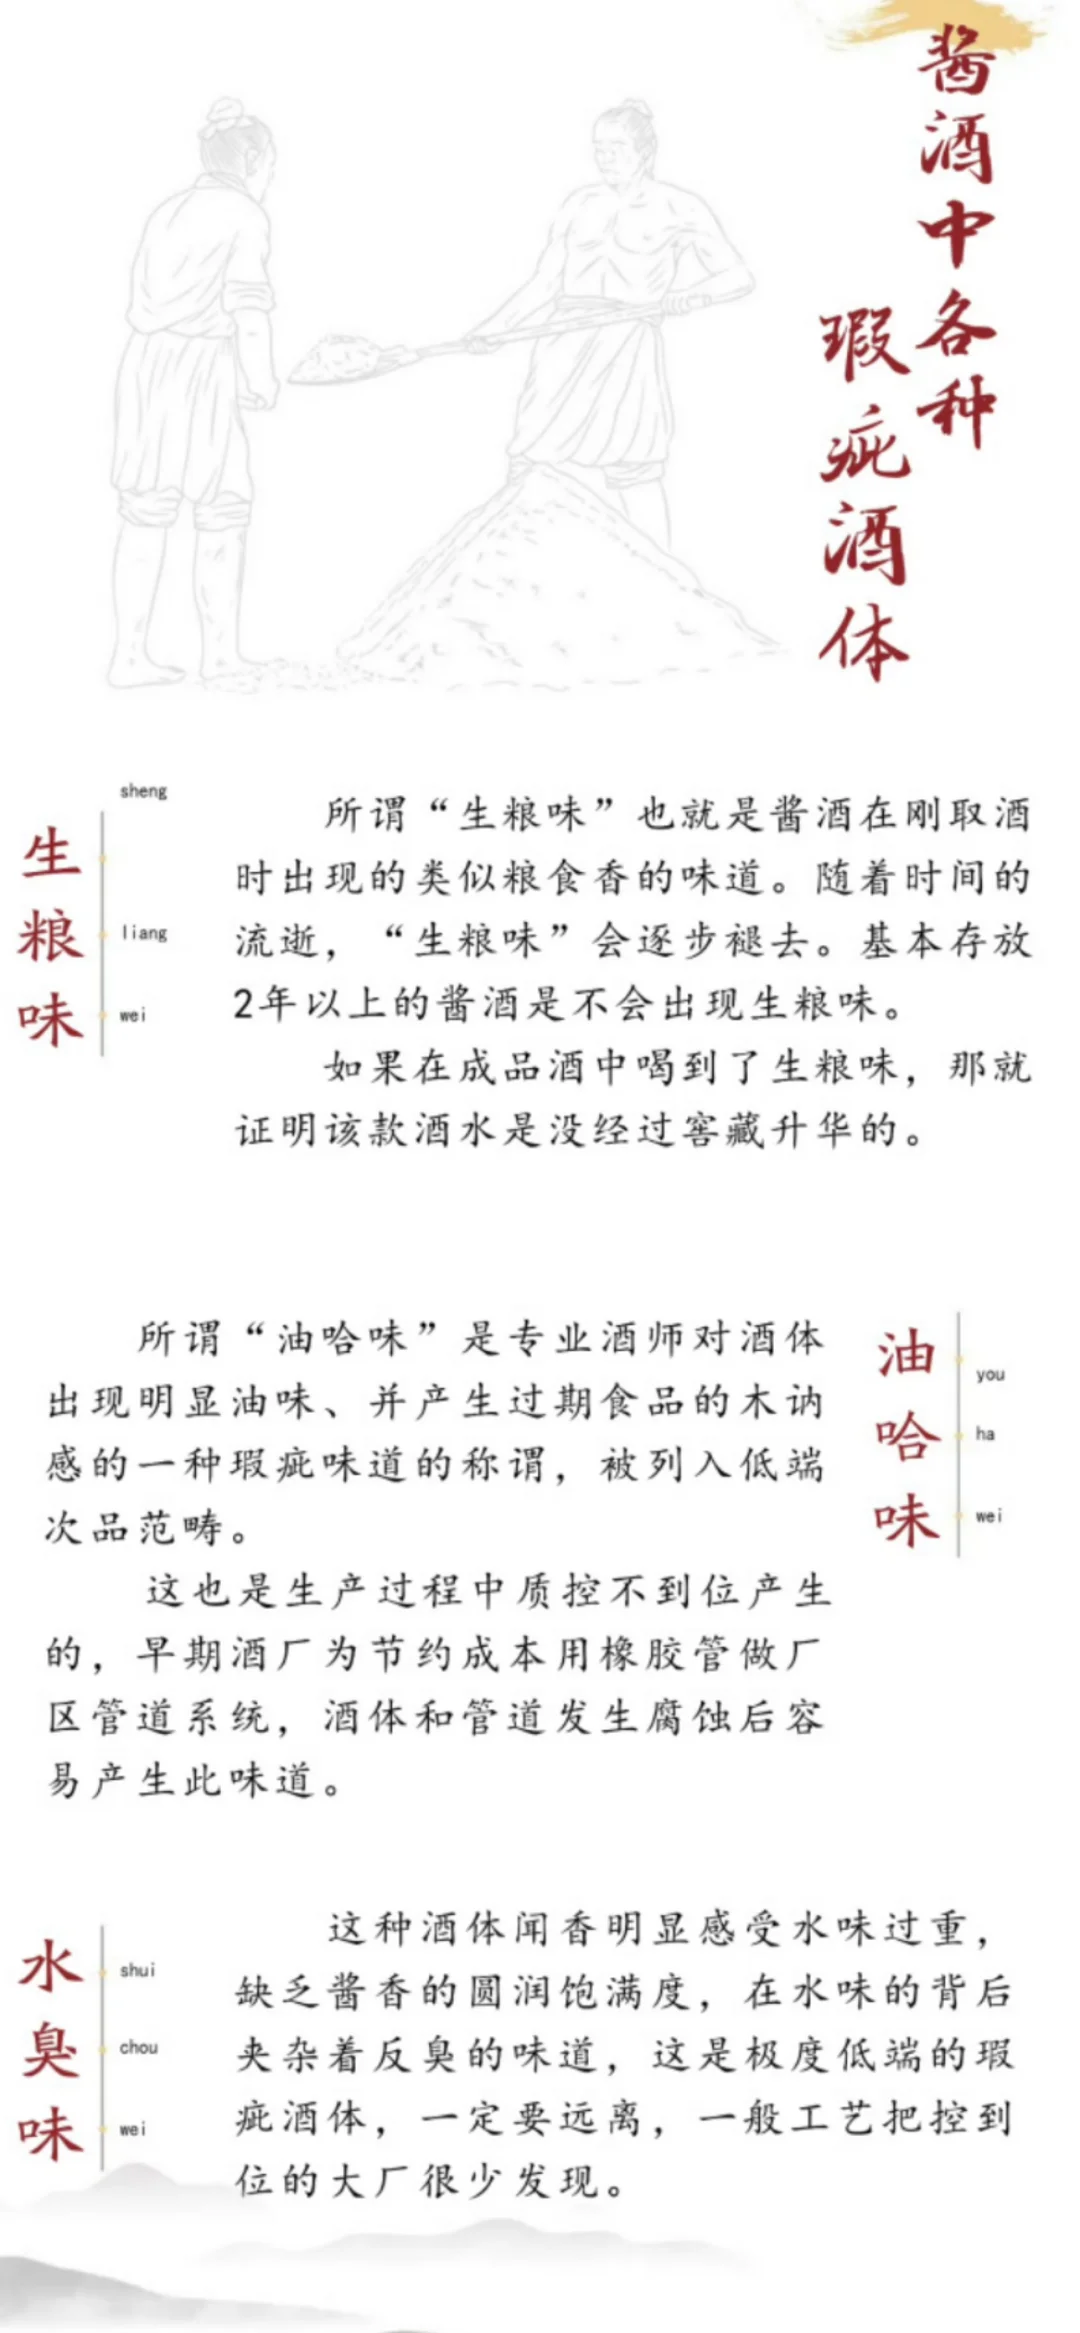 酱酒中各种
瑕疵酒体
生粮味
sheng
liang
wei
所谓“生粮味”也就是酱酒在刚取酒
时出现的类似粮食香的味道。随着时间的
流逝，“生粮味”会逐步褪去。基本存放
2年以上的酱酒是不会出现生粮味。
如果在成品酒中喝到了生粮味，那就
证明该款酒水是没经过窖藏升华的。
所谓“油哈味”是专业酒师对酒体
出现明显油味、并产生过期食品的木讷
感的一种瑕疵味道的称谓，被列入低端
次品范畴。
这也是生产过程中质控不到位产生
的，早期酒厂为节约成本用橡胶管做厂
区管道系统，酒体和管道发生腐蚀后容
易产生此味道。
油哈味
you
ha
wei
水臭味
shui
chou
wei
这种酒体闻香明显感受水味过重，
缺乏酱香的圆润饱满度，在水味的背后
夹杂着反臭的味道，这是极度低端的瑕
疵酒体，一定要远离，一般工艺把控到
位的大厂很少发现。